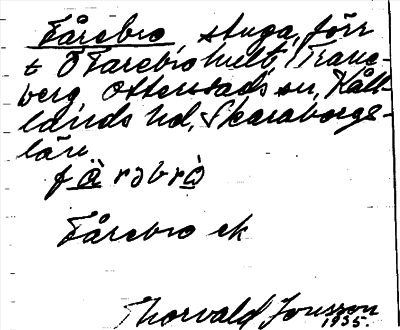 Fårebro stuga, förr
t Ö Farebro hult, Trane-
berg Ottersads sn, Kål-
lands hd, Skaraborgs-
län
f à rəbr ò
Fårebro ek
Thorvald Jonsson
1935.